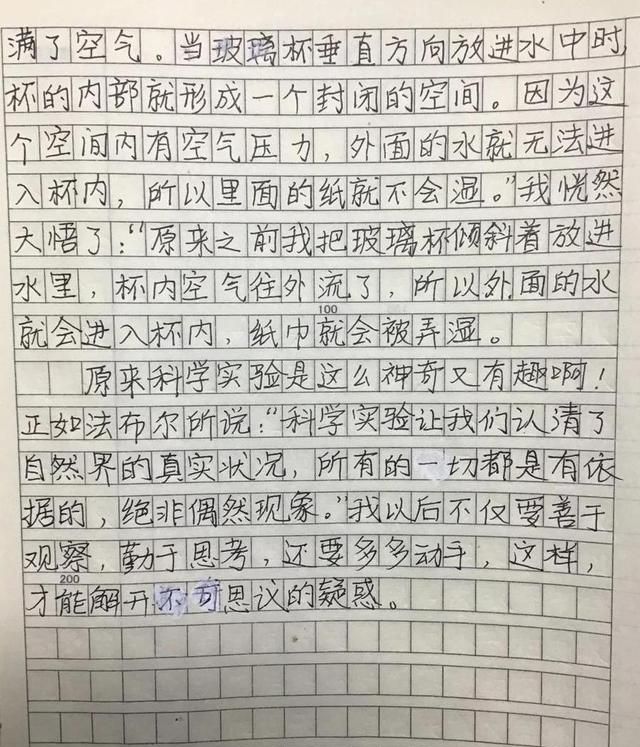 满了空气。当玻璃杯垂直方向放进水中时,
杯的内部就形成一个封闭的空间。因为这
个空间内有空气压力,外面的水就无法进
入杯内,所以里面的纸就不会湿。”我恍然
大悟了:“原来之前我把玻璃杯倾斜着放进
水里,杯内空气往外流了,所以外面的水
100
就会进入杯内,纸巾就会被弄湿。
原来科学实验是这么神奇又有趣啊!
正如法布尔所说:“科学实验让我们认清了
自然界的真实状况,所有的一切都是有依
据的,绝非偶然现象。”我以后不仅要善于
观察,勤于思考,还要多多动手,这样,
200
才能解开不可思议的疑惑。